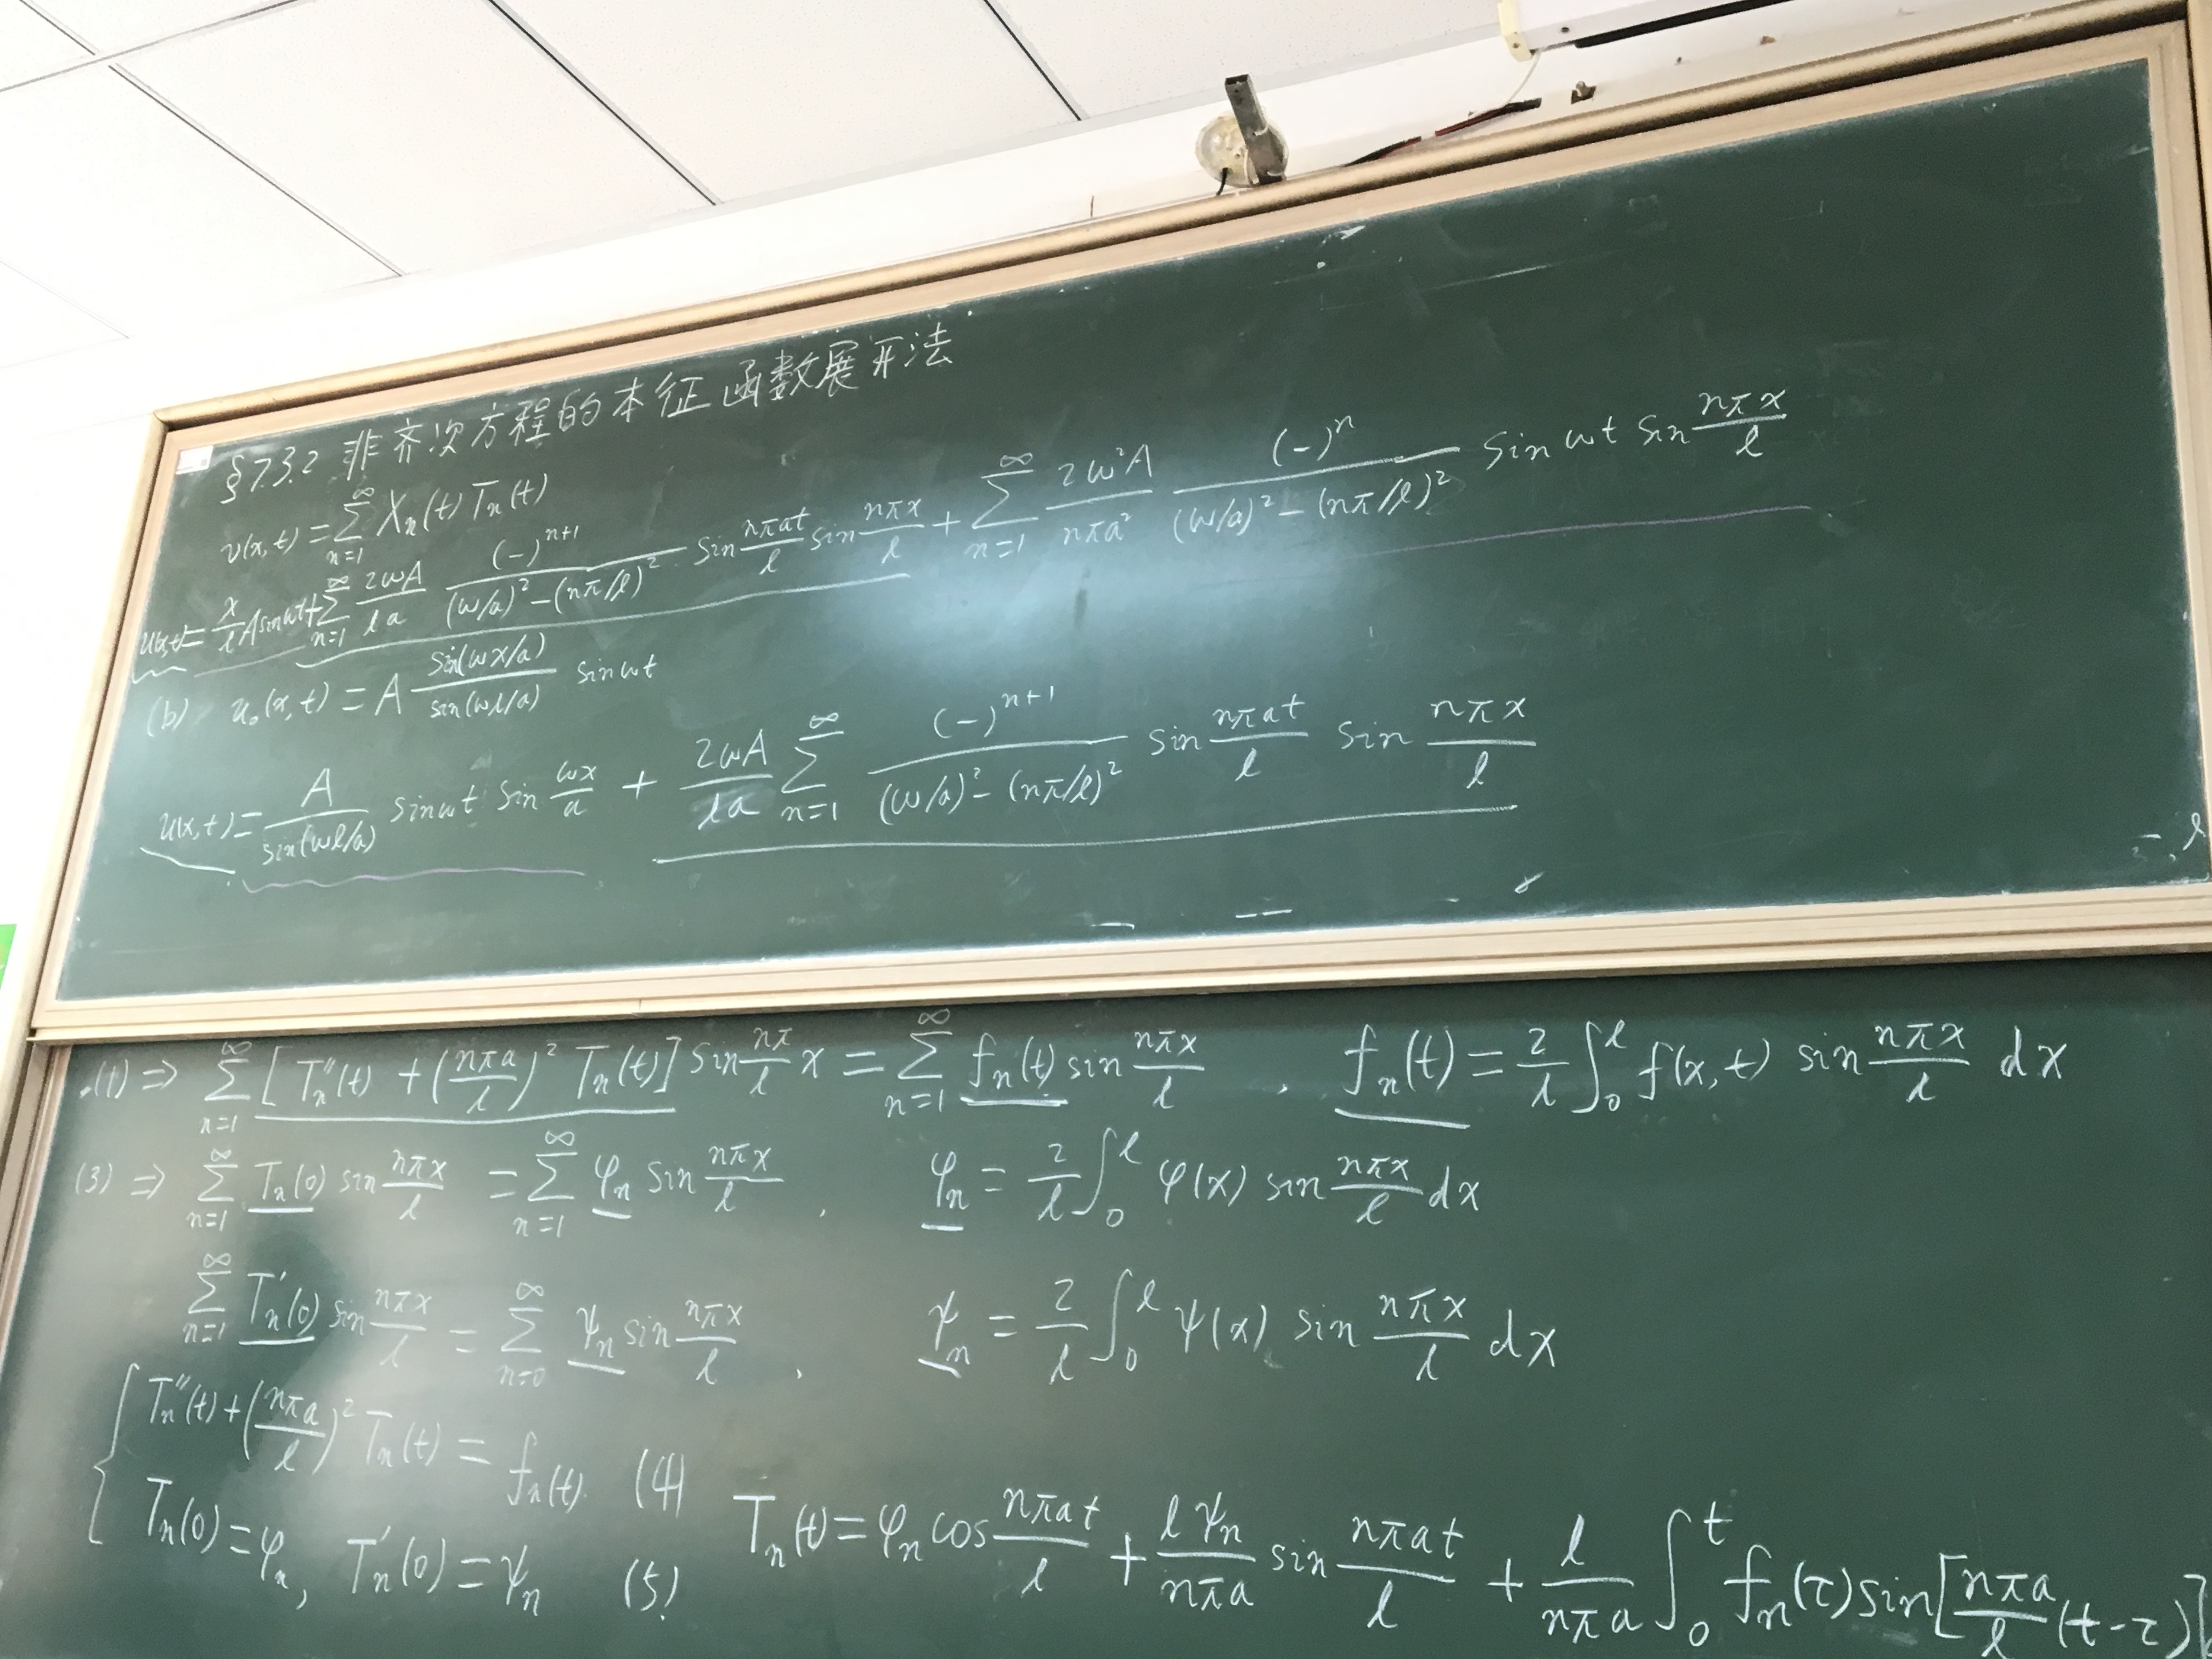 §7.3.2 非齐次方程的本征函数展开法
v(x,t) = ∑_{n=1}^{∞} X_n(t) T_n(t)
u(x,t) = \frac{x}{l} A sin ωt + ∑_{n=1}^{∞} \frac{2ωA}{la} \frac{(-)^{n+1}}{(ω/a)^2 - (nπ/l)^2} sin \frac{nπat}{l} sin \frac{nπx}{l} + ∑_{n=1}^{∞} \frac{2ω^2A}{nπa^2} \frac{(-)^n}{(ω/a)^2 - (nπ/l)^2} sin ωt sin \frac{nπx}{l}
(b) u_0(x,t) = A \frac{sin(ωx/a)}{sin(ωl/a)} sin ωt
u(x,t) = \frac{A}{sin(ωl/a)} sin ωt sin \frac{ωx}{a} + \frac{2ωA}{la} ∑_{n=1}^{∞} \frac{(-)^{n+1}}{(ω/a)^2 - (nπ/l)^2} sin \frac{nπat}{l} sin \frac{nπx}{l}
(1) ⇒ ∑_{n=1}^{∞} [T_n''(t) + (\frac{nπa}{l})^2 T_n(t)] sin \frac{nπ}{l} x = ∑_{n=1}^{∞} f_n(t) sin \frac{nπx}{l} , f_n(t) = \frac{2}{l} ∫_0^l f(x,t) sin \frac{nπx}{l} dx
(3) ⇒ ∑_{n=1}^{∞} T_n(0) sin \frac{nπx}{l} = ∑_{n=1}^{∞} φ_n sin \frac{nπx}{l} , φ_n = \frac{2}{l} ∫_0^l φ(x) sin \frac{nπx}{l} dx
∑_{n=1}^{∞} T_n'(0) sin \frac{nπx}{l} = ∑_{n=0}^{∞} ψ_n sin \frac{nπx}{l} , ψ_n = \frac{2}{l} ∫_0^l ψ(x) sin \frac{nπx}{l} dx
{ T_n''(t) + (\frac{nπa}{l})^2 T_n(t) = f_n(t) (4)
T_n(0) = φ_n, T_n'(0) = ψ_n (5)
T_n(t) = φ_n cos \frac{nπat}{l} + \frac{lψ_n}{nπa} sin \frac{nπat}{l} + \frac{l}{nπa} ∫_0^t f_n(τ) sin[\frac{nπa}{l}(t-τ)]